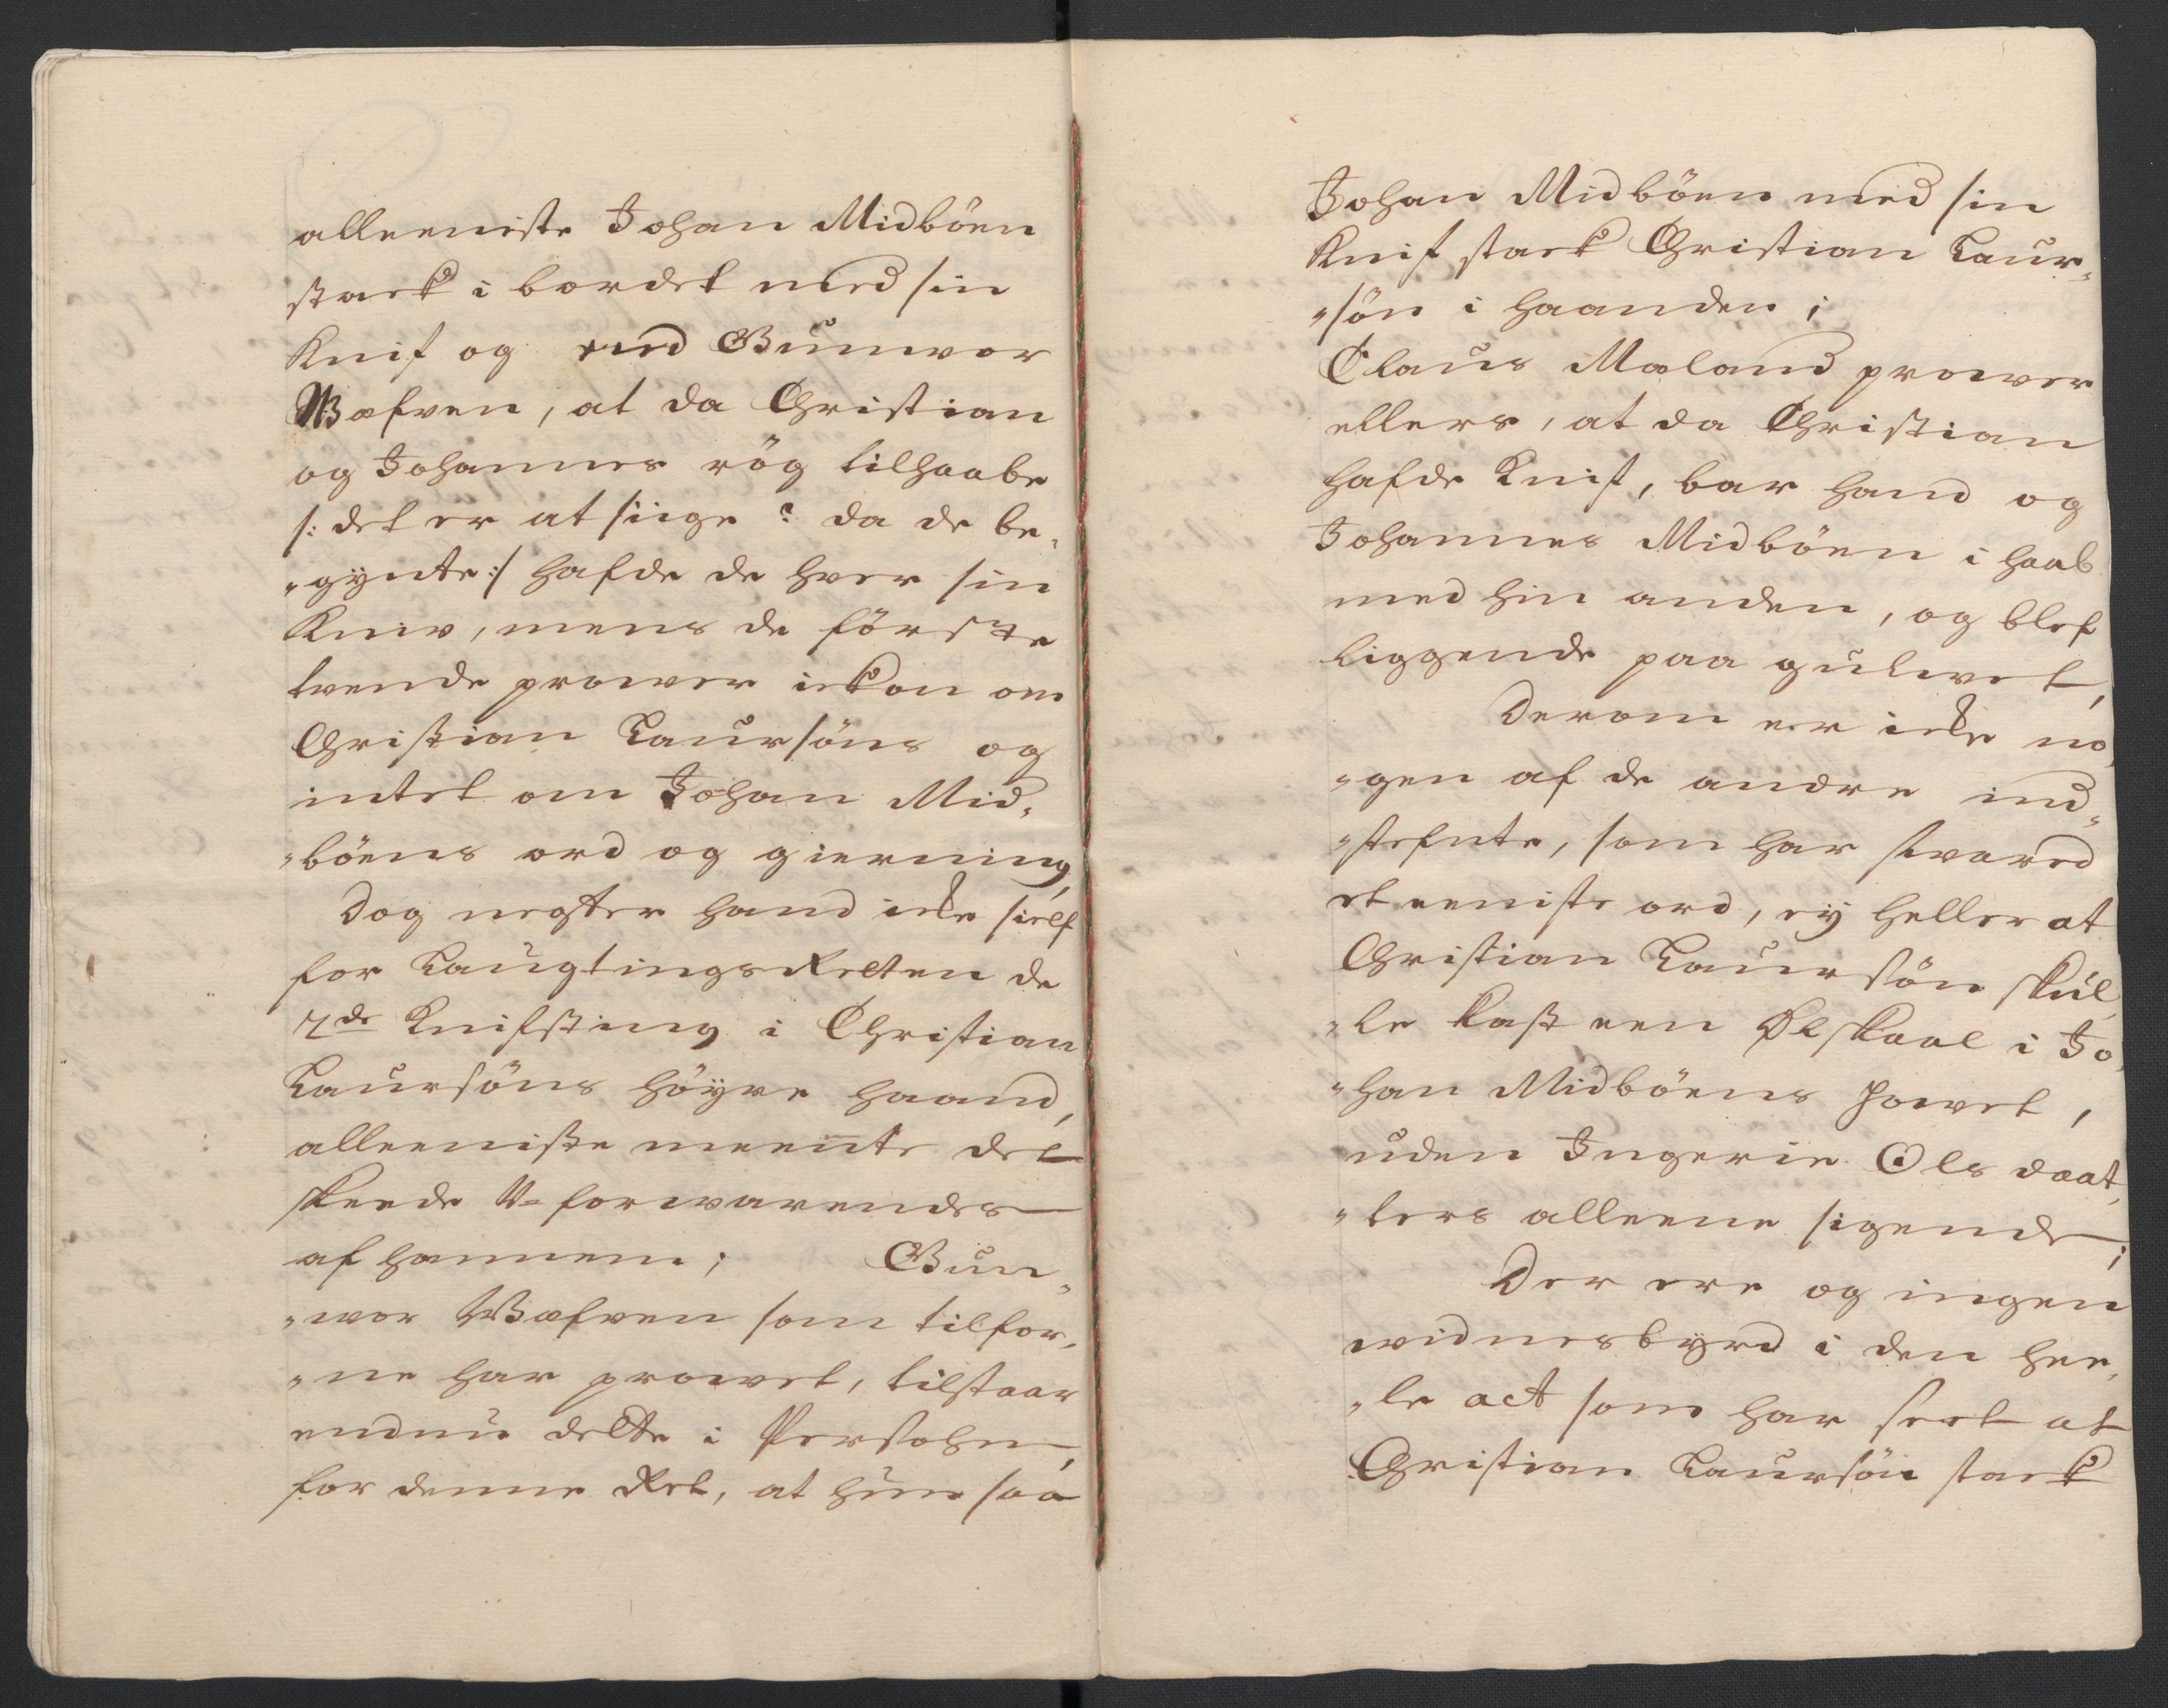 alleeniste Johan Midböen
stack i bordet med sin
Knif og end Gunwor
Wæfven, at da Christian
og Johannes røg tilhaabe
/: det er at siige : da de be„
„gynte :/ hafde de hver sin
Kniv, mens de förste
tvende prower ickon om
Christian Laursöns og
intet om Johan Mid„
„böens ord og gierning,
Dog negter hand icke sielf
for Laugtings Retten de
7de Knifsting i Christian
Laursöns höyre haand,
alleeniste meente det
skeede U=forwarendes
af hannem; Gun„
„wor Wæfven som tilfor„
„ne har prowet, tilstaar
endnu dette i Persohn,
for denne Ret, at hun saa
Johan Midböen med sin
Knif stack Christian Laur„
„sön i haanden;
Claus Maland prower
ellers, at da Christian
hafde Knif, bar hand og
Johannes Midböen i haab
med hin anden, og blef
liggende paa gulwet,
Derom er icke no„
„gen af de andre ind„
„stefnte, som har svared
et eeniste ord, ey heller at
Christian Laursön skul„
„le kast een Ölskaal i Jo„
„han Midböens howet,
uden Ingerie Ols daat„
„ters alleene sigende;
Der ere og ingen
widnesbyrd i den hee„
„le act som har seet at
Christian Laursön stack